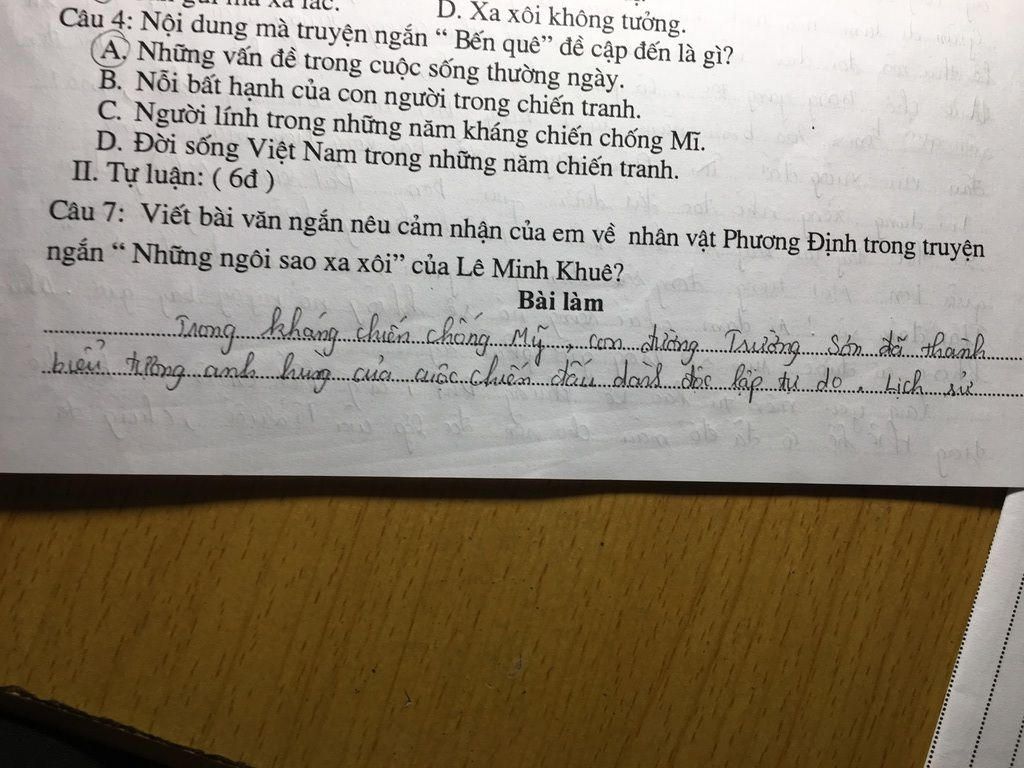 gũi mà xa lắc.
D. Xa xôi không tưởng.
Câu 4: Nội dung mà truyện ngắn “ Bến quê” đề cập đến là gì?
A. Những vấn đề trong cuộc sống thường ngày.
B. Nỗi bất hạnh của con người trong chiến tranh.
C. Người lính trong những năm kháng chiến chống Mĩ.
D. Đời sống Việt Nam trong những năm chiến tranh.
II. Tự luận: ( 6đ )
Câu 7: Viết bài văn ngắn nêu cảm nhận của em về nhân vật Phương Định trong truyện
ngắn “ Những ngôi sao xa xôi” của Lê Minh Khuê?
Bài làm
Trong kháng chiến chống Mỹ, con đường Trường Sơn đã thành
biểu tượng anh hùng của cuộc chiến đấu dành độc lập tự do. Lịch sử